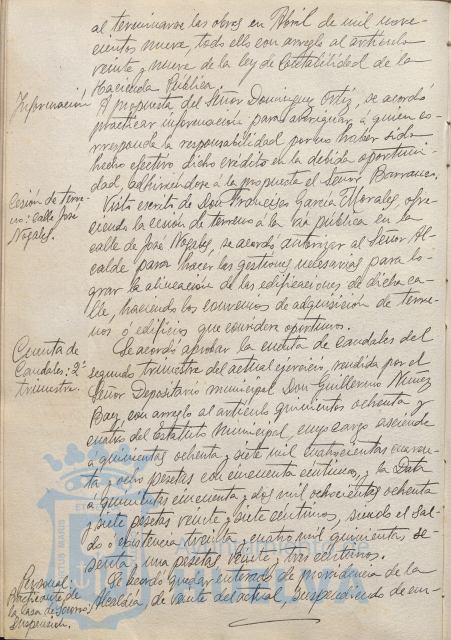 al terminarse las obras en Abril de mil nove-
cientos nueve, todo ello con arreglo al artículo
veinte y nueve de la ley de Contabilidad de la
Hacienda Pública.
Información
A propuesta del Señor Dominguez Ortiz, se acordó
practicar información para averiguar a quien co-
rresponde la responsabilidad por no haber sido
hecho efectivo dicho crédito en la debida oportuni-
dad, adhiriéndose á la propuesta el Señor Barranco.
Cesión de terre-
no: calle José
Nogales.
Visto escrito de Don Francisco García Morales, ofre-
ciendo la cesión de terreno á la vía pública en la
calle de José Nogales, se acordó autorizar al Señor Al-
calde para hacer las gestiones necesarias para lo-
grar la alineación de las edificaciones de dicha ca-
lle, haciendo los convenios de adquisición de terre-
nos ó edificios que considere oportunos.
Cuenta de
Caudales: 2º
trimestre.
Se acordó aprobar la cuenta de caudales del
segundo trimestre del actual ejercicio, rendida por el
Señor Depositario municipal Don Guillermo Núñez
Bay, con arreglo al artículo quinientos ochenta y
cuatro del Estatuto Municipal, cuyo cargo asciende
á quinientas ochenta y siete mil cuatrocientas cuaren-
ta y ocho pesetas con cincuenta centimos, y la Data
á quinientas cincuenta y dos mil ochocientas ochenta
y siete pesetas veinte y siete centimos, siendo el Sal-
do ó existencia treinta y cuatro mil quinientas se-
senta y una pesetas veinte y tres centimos.
Personal:
Practicante de
la Casa de Socorro:
Suspensión.
Se acordó quedar enterado de providencia de la
Alcaldía, de veinte del actual, suspendiendo de em-